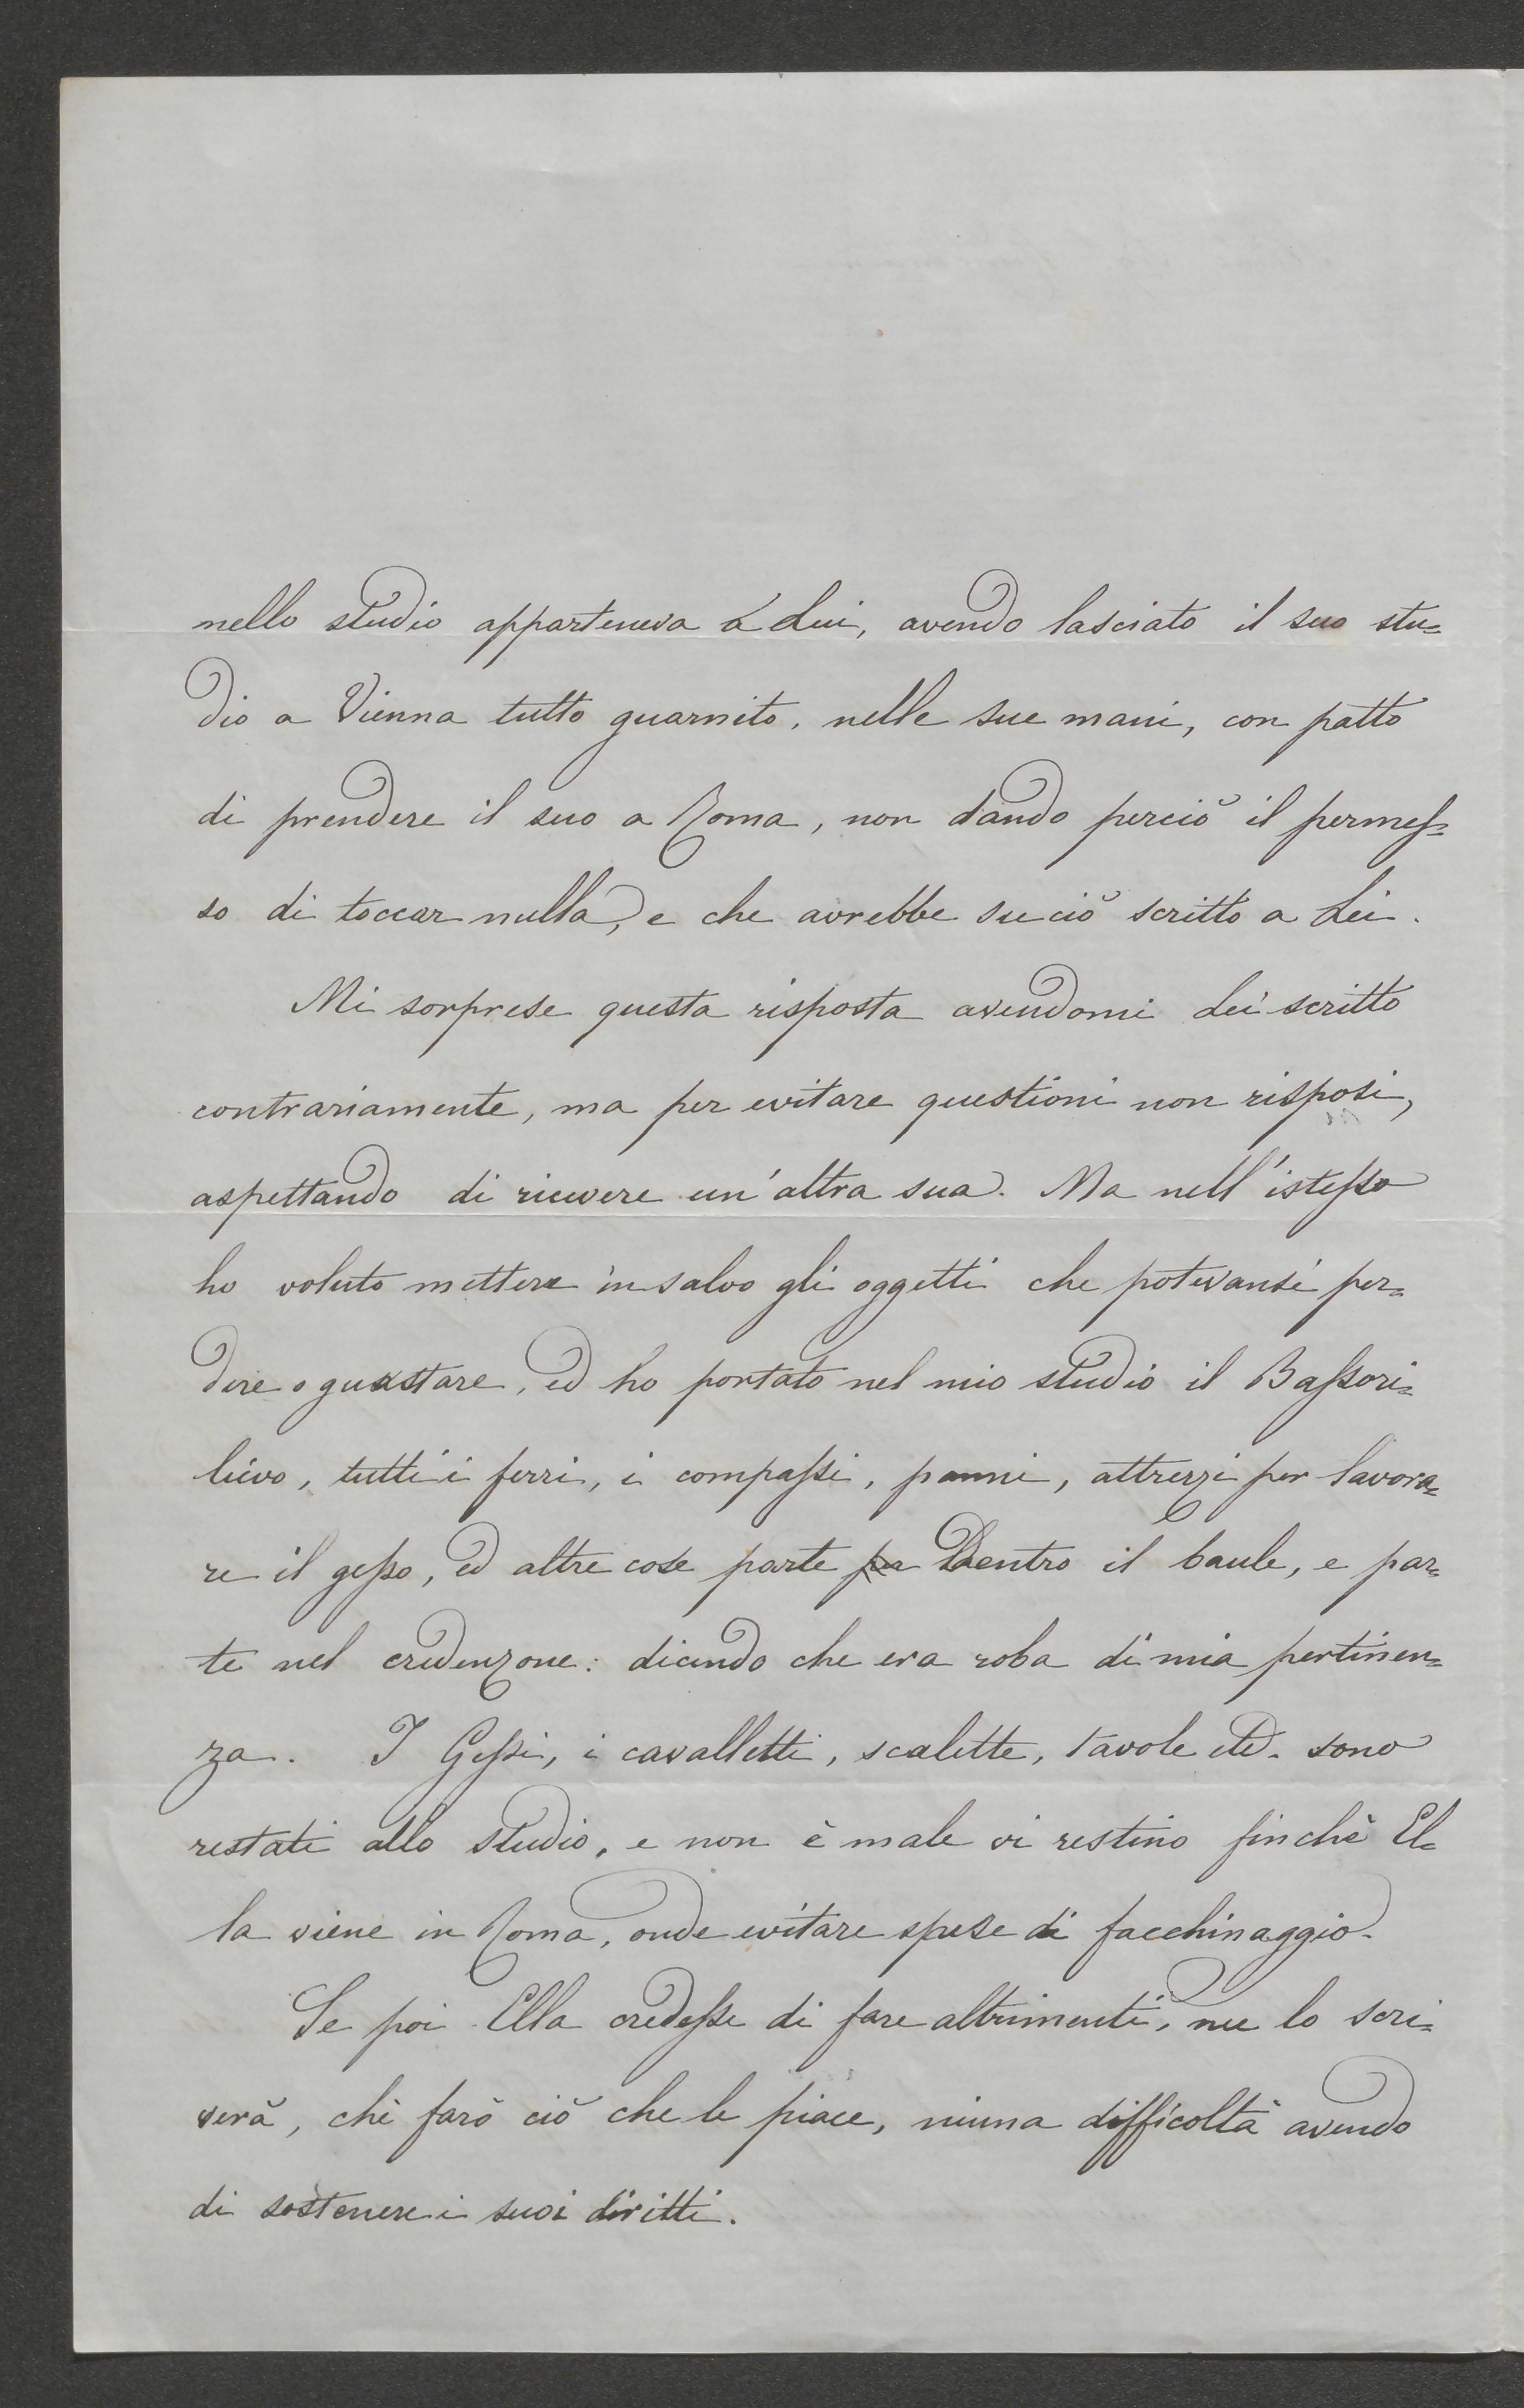 nello studio apparteneva a Lui, avendo lasciato il suo stu=
dio a Vienna tutto guarnito, nelle sue mani, con patto
di prendere il suo a Roma, non dando perciò il permes=
so di toccar nulla, e che avrebbe su ciò scritto a Lei.
Mi sorprese questa risposta avendomi Lei scritto
contrariamente, ma per evitare questioni non risposi,
aspettando di ricevere un'altra sua. Ma nell'istesso
ho voluto mettere in salvo gli oggetti che potevansi per=
dere o guastare, ed ho portato nel mio studio il Bassori=
lievo, tutti i ferri, i compassi, panni, attrezzi per lavora=
re il gesso, ed altre cose parte per Dentro il baule, e par=
te nel credenzone: dicendo che era roba di mia pertinen=
za. I Gessi, i cavalletti, scalette, tavole etc. sono
restati allo studio, e non è male vi restino finchè El=
la viene in Roma, onde evitare spese di facchinaggio.
Se poi Ella credesse di fare altrimenti, me lo scri=
verà, chè farò ciò che le piace, niuna difficoltà avendo
di sostenere i suoi diritti.